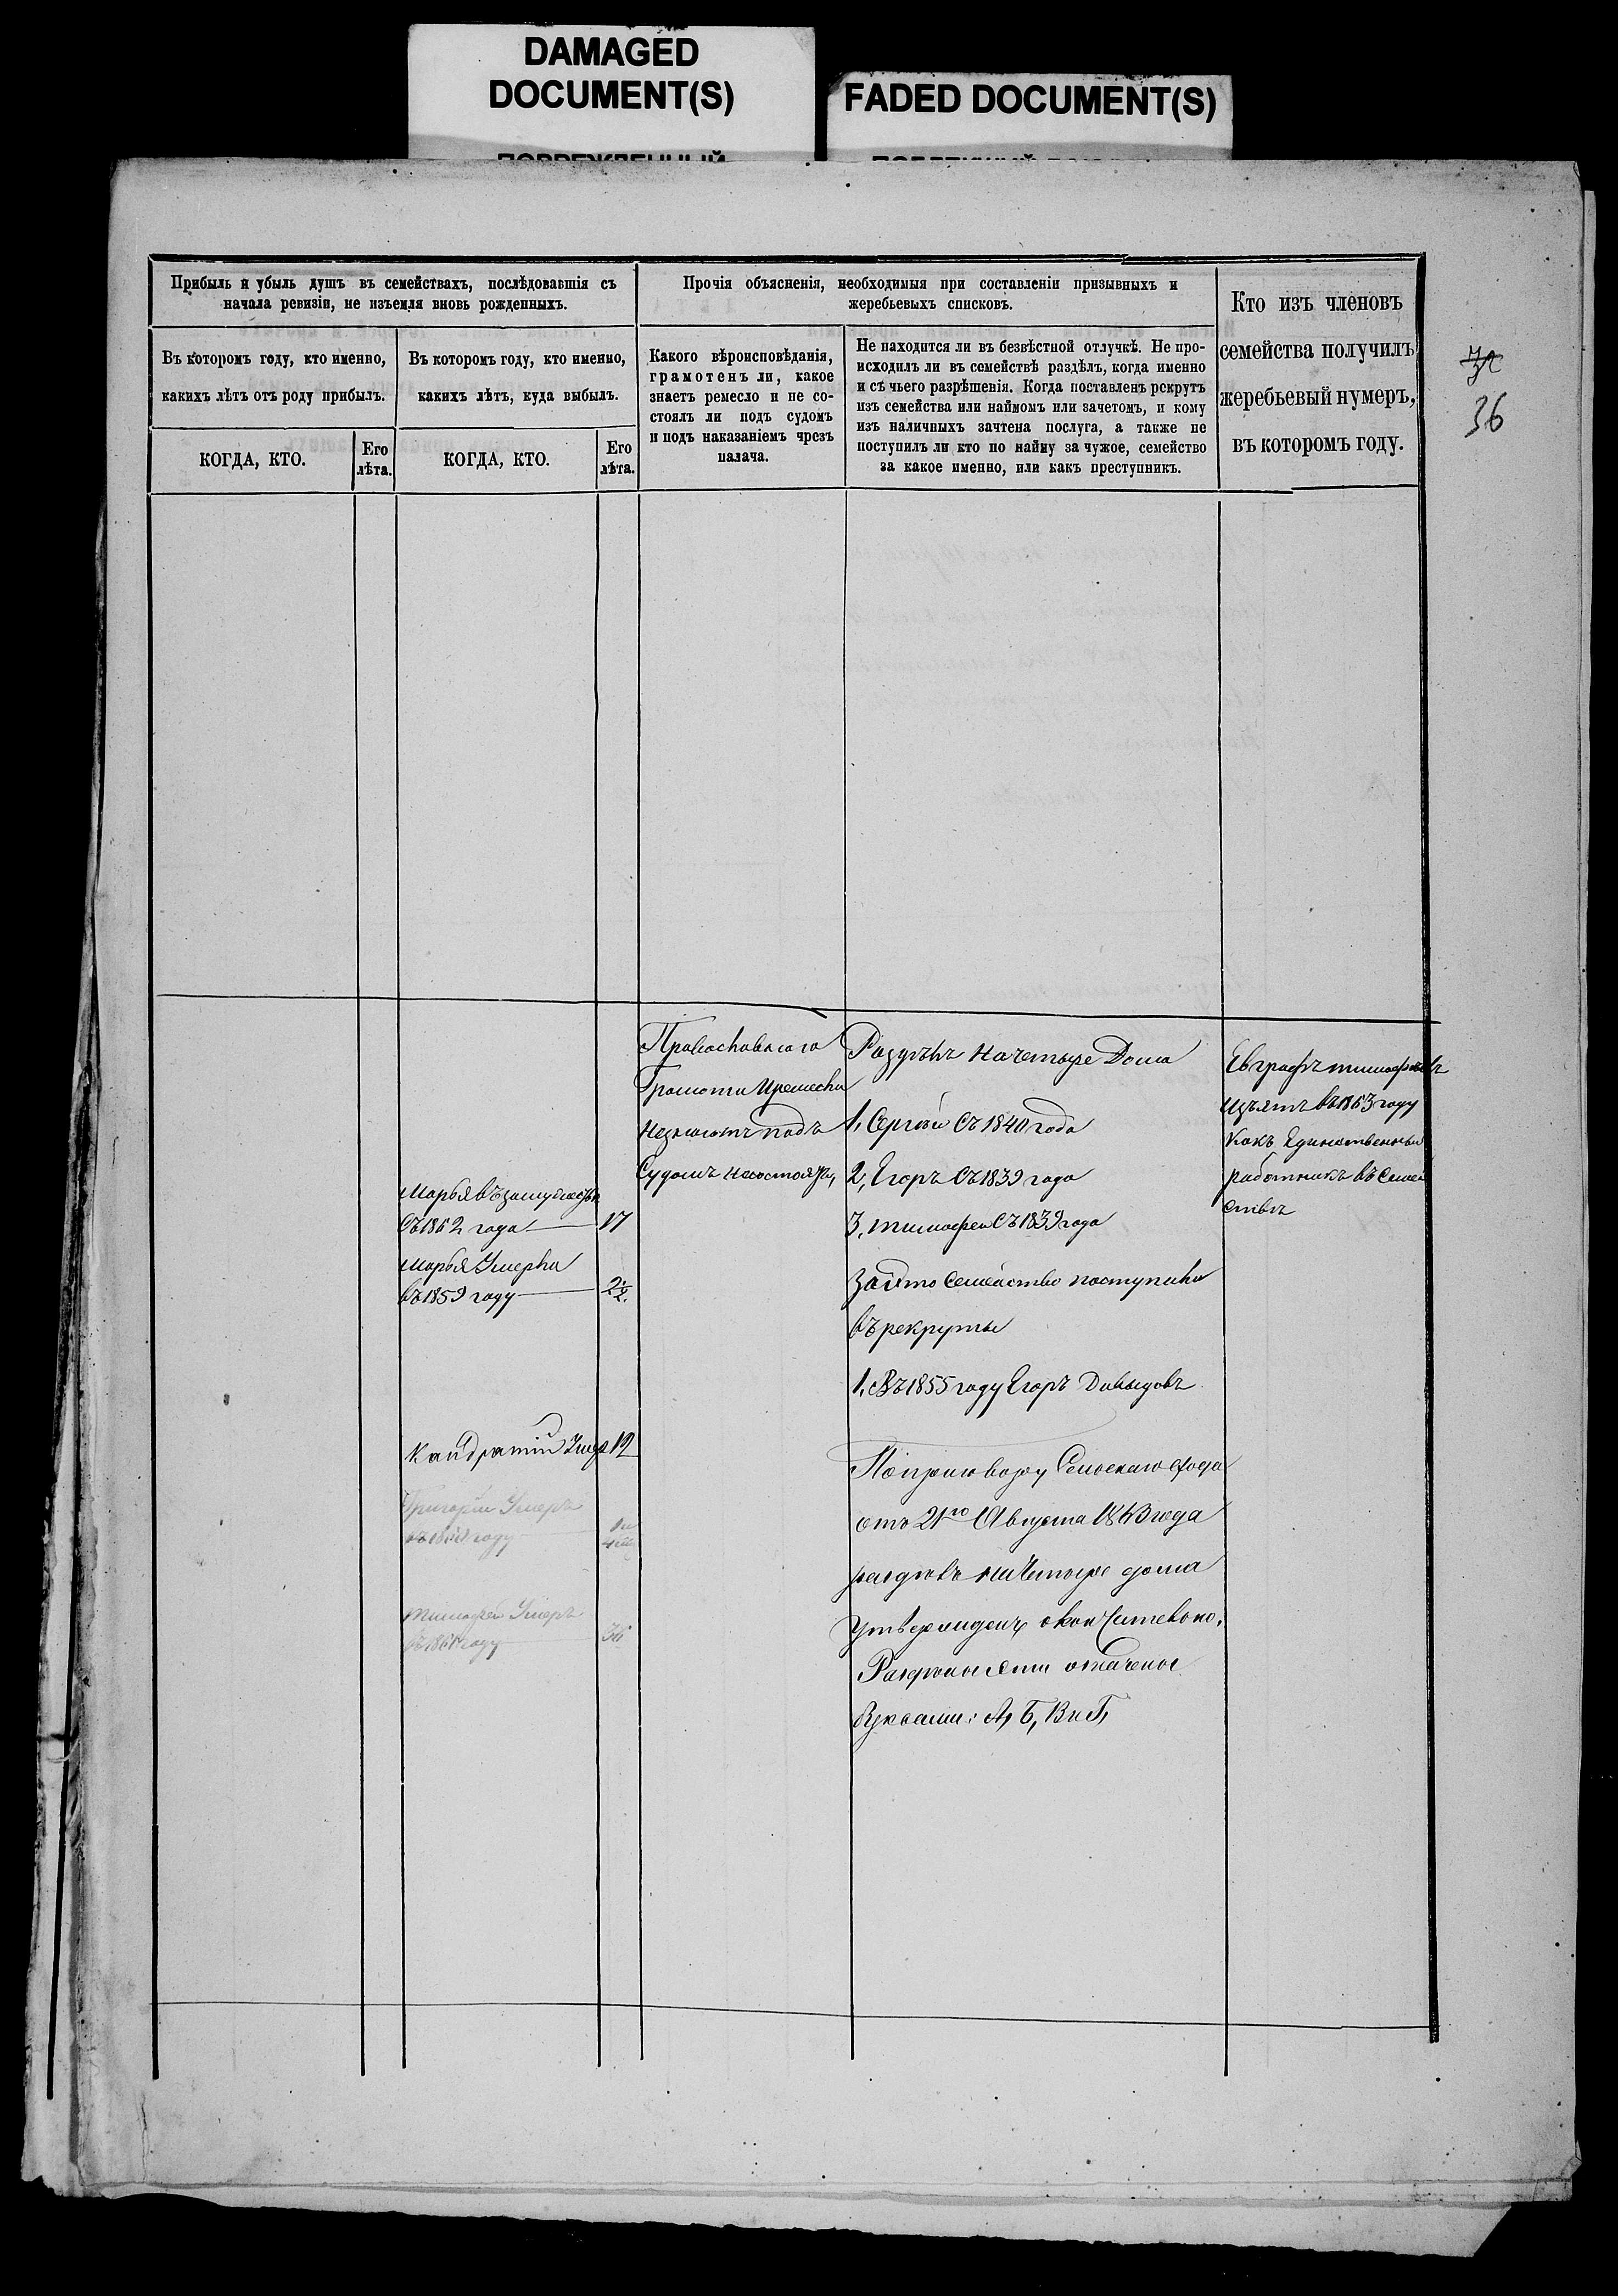 DAMAGED
DOCUMENT(S)
FADED DOCUMENT(S)
Прибыль и убыль душъ въ семействахъ, послѣдовавшія съ
начала ревизіи, не изъемля вновь рожденныхъ.
Въ которомъ году, кто именно,
какихъ лѣтъ отъ роду прибылъ.
КОГДА, КТО.
Его
лѣта.
Въ которомъ году, кто именно,
какихъ лѣтъ, куда выбылъ.
КОГДА, КТО.
Его
лѣта.
Прочія объясненія, необходимыя при составленіи призывныхъ и
жеребьевыхъ списковъ.
Какого вѣроисповѣданія,
грамотенъ ли, какое
знаетъ ремесло и не со-
стоялъ ли подъ судомъ
и подъ наказаніемъ чрезъ
палача.
Не находится ли въ безвѣстной отлучкѣ. Не про-
исходилъ ли въ семействѣ раздѣлъ, когда именно
и съ чьего разрѣшенія. Когда поставленъ рекрутъ
изъ семейства или наймомъ или зачетомъ, и кому
изъ наличныхъ зачтена послуга, а также не
поступилъ ли кто по найму за чужое, семейство
за какое именно, или какъ преступникъ.
Кто изъ членовъ
семейства получилъ
жеребьевый нумеръ,
въ которомъ году.
36
Марья въ замужестве
съ 1862 года 17
Марья Умерла
въ 1859 году 2½
Кандратій Умер 12
Григорій Умеръ
году
Тимофей Умеръ
году 36
Православнаго
Грамоти Иремесла
Незнаютъ подъ
Судомъ несостояли,
Раздѣлъ на четыре Дома
1, Сергей съ 1840 года
2, Егоръ съ 1839 года
3, Тимофей съ 1839 года
За это Семейство поступила
въ рекруты
1, Въ 1855 году Егоръ Давыдовъ
По приговору Сельскаго схода
отъ 21го Августа года
раздѣлъ на Четыре дома
Утвержденъ
Буквами: А, Б, В и Г,
Евграфъ Тимофеевъ
Изъятъ въ 1863 году
Какъ Единственный
работникъ въ Семей
ствѣ